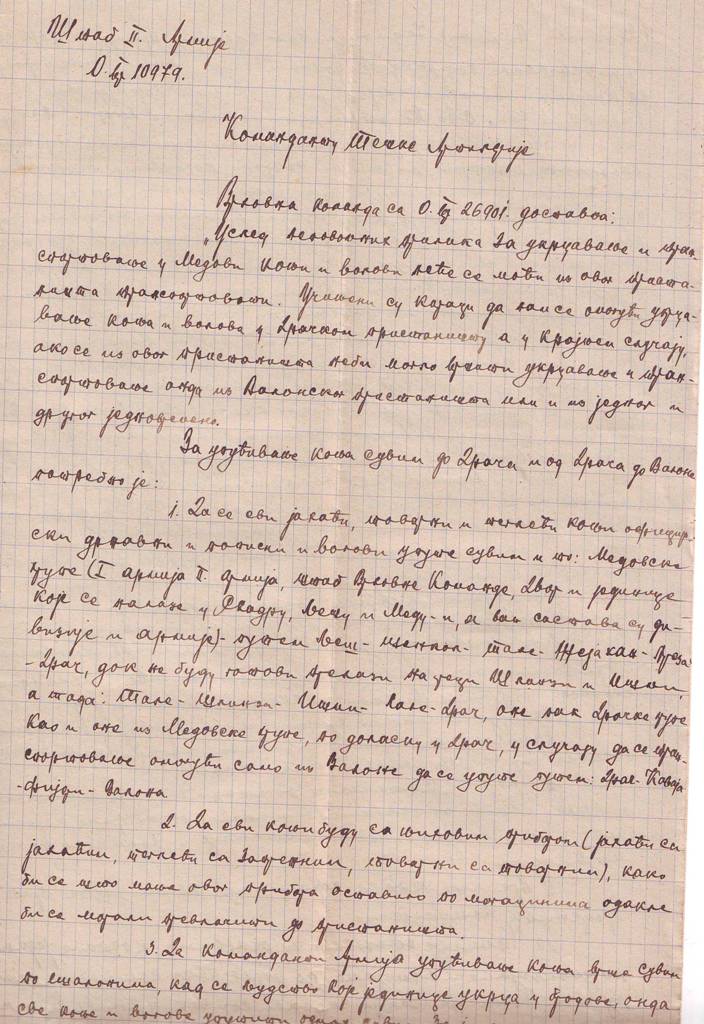 Штаб II. Армије
О. Бр 10979.
Команданту Тешке Артилерије
Врховна команда са О. Бр 26901. доставља:
„Услед неповољних прилика за укрцавање и тран-
спортовање у Медови коњи и волови неће се моћи из овог приста-
ништа транспортовати. Учињени су кораци да нам се омогући укрца-
вање коња и волова у Драчком пристаништу а у крајњем случају,
ако се из овог пристаништа неби могло вршити укрцавање и тран-
спортовање онда из Валонског пристаништа или и из једног и
другог једновремено.
За упућивање коња сувим до Драча и од Драча до Валоне
потребно је:
1. Да се сви јахаћи, товарни и теглећи коњи официр-
ски државни и пописни и волови упуте сувим и то: Медовске
групе (I армија II. армија, штаб Врховне Команде, Двор и јединице
које се налазе у Скадру, Љешу и Меду-и, а ван састава су ди-
визије и армије)- путем Љеш- - Мале- - Преза
-Драч, док не буду готови прелази на реци и Ишми,
а тада: Мале- - Ишми- -Драч, оне пак Драчке групе
као и оне из Медовске групе, по доласку у Драч, у случају да се тран-
спортовање омогући само из Валоне да се упуте путем: Драч- Каваја
-Фијери- Валона.
2. Да сви коњи буду са њиховим прибором (јахаћи са
јахаћим, теглећи са запрежним, товарни са товарним), како
би се што мање овог прибора оставило по магацинима одакле
би се морали превлачити до пристаништа.
3. Да команданти Армија упућивање коња врше сувим
по ешалонима, кад се људство које јединице укрца у бродове, онда
све коње и волове упутити